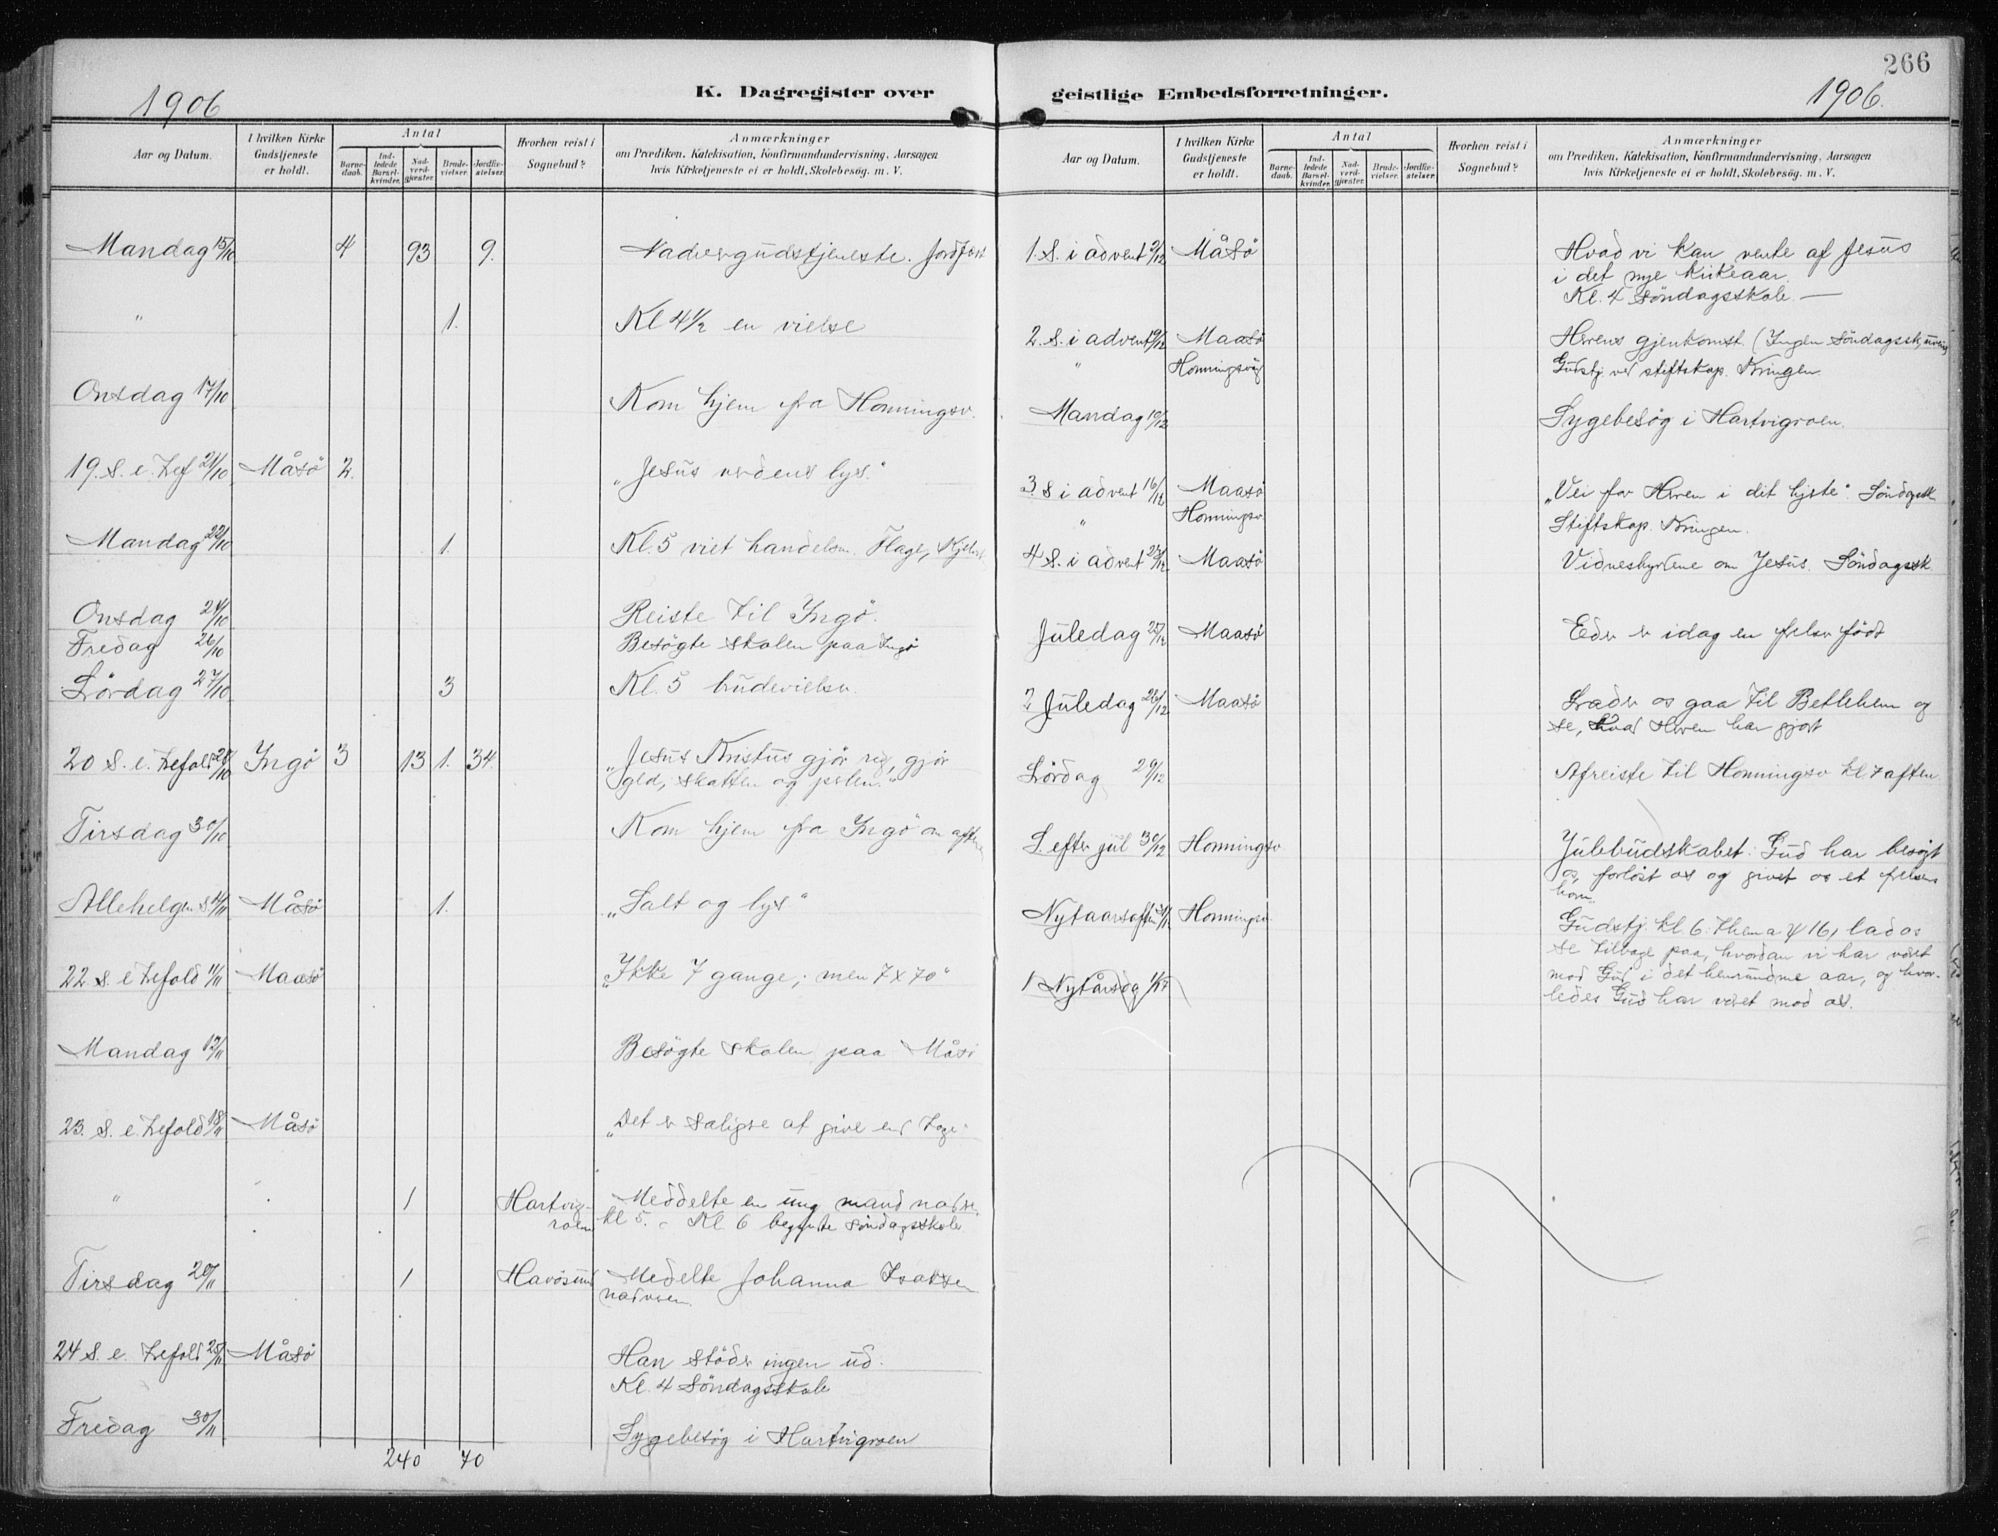 266
1906
K. Dagregister over
geistlige Embedsforretninger.
1906.
Aar og Datum.
I hvilken Kirke Gudstjeneste er holdt.
Antal
Barne-daab.
Ind-ledede Barsel-kvinder.
Nad-verd-gjæster.
Brude-vielser.
Jordfæ-stelser.
Hvorhen reist i Sognebud?
Anmærkninger
om Prædiken, Katekisation, Konfirmandundervisning, Aarsagen
hvis Kirketjeneste ei er holdt, Skolebesøg. m. V.
Mandag 15/10 4 93 9. Nadvergudstjeneste.
" 1. Kl 4½ en vielse
Onsdag 17/10 Kom hjem fra Honningsv.
19. S. e. Tref 21/10 Måsö 2. "Jesus verdens lys."
Mandag 22/10 1. Kl. 5 viet handelsm. Hage,
Onsdag 24/10 Reiste til Ingö.
Fredag 26/10 Besögte skolen paa Ingö
Lördag 27/10 3 Kl. 5 brudevielser.
20 S. e. Trefold 28/10 Ingö 3 13 1. 34. "Jesus Kristus gjör rig, gjör
gld, skatten og perlen."
Tirsdag 30/10 Kom hjem fra Ingö om aften
Allehelgen S 4/11 Måsö 1. "Salt og lys"
22 S. e Trefold 11/11 Maasö "Ikke 7 gange; men 7 x 70"
Mandag 12/11 Besögte skolen paa Måsö
23. S. e. Trefold 18/11 Måsö "Det er saligere at give end tage"
" " 1 Hartvig-
roen Meddelte en ung mand nadve.
kl 5. - Kl. 6 begynte söndagsskole
Tirsdag 20/11 1 Havösund Medelte Johanna Isaksen
nadveren.
24 S. e. Trefold 25/11 Måsö Han stöder ingen ud.
Kl. 4 Söndagsskole
Fredag 30/11 Sygebesög i Hartvigroen
240 70
Aar og Datum.
I hvilken Kirke Gudstjeneste er holdt.
Antal
Barne-daab.
Ind-ledede Barsel-kvinder.
Nad-verd-gjæster.
Brude-vielser.
Jordfæ-stelser.
Hvorhen reist i Sognebud?
Anmærkninger
om Prædiken, Katekisation, Konfirmandundervisning, Aarsagen
hvis Kirketjeneste ei er holdt, Skolebesøg. m. V.
1. S. i advent 2/12 Måsö Hvad vi kan vente af Jesus
i det nye kirkeaar.
Kl. 4 Söndagsskole. —
2. S. i advent 9/12 Maasö Herrens gjenkomst. (Ingen Söndagssk,
" Honningsvåg Gudstj. ved stiftskap. Kringen
Mandag 10/12 Sygebesøg i Hartvigroen.
3. S i advent 16/12 Maasö "Vei for Herren i dit hjerte". Söndagssk
" Honningsv. Stiftskap. Kringen.
4 S. i advent 23/12 Maasö Vidnesbyrdene om Jesus. Söndagssk
Juledag 25/12 Maasö Eder er idag en frelser född
2 Juledag 26/12 Maasö Lader os gaa til Betlehem og
se, hvad Herren har gjort
Lördag 29/12 Afreiste til Honningsv kl. 7 aften.
S. efter jul 30/12 Honningsv Julebudskabet: Gud har besögt
os, forlöst os og givet os et frelsens
horn
Nytaarsaften Honningsv. Gudstj. kl. 6. Thema 16, lad os
se tilbage paa, hvordan vi har været
mod Gud i det henrundne aar, og hvor-
ledes Gud har været mod os.
1 Nytårsdag 1/1